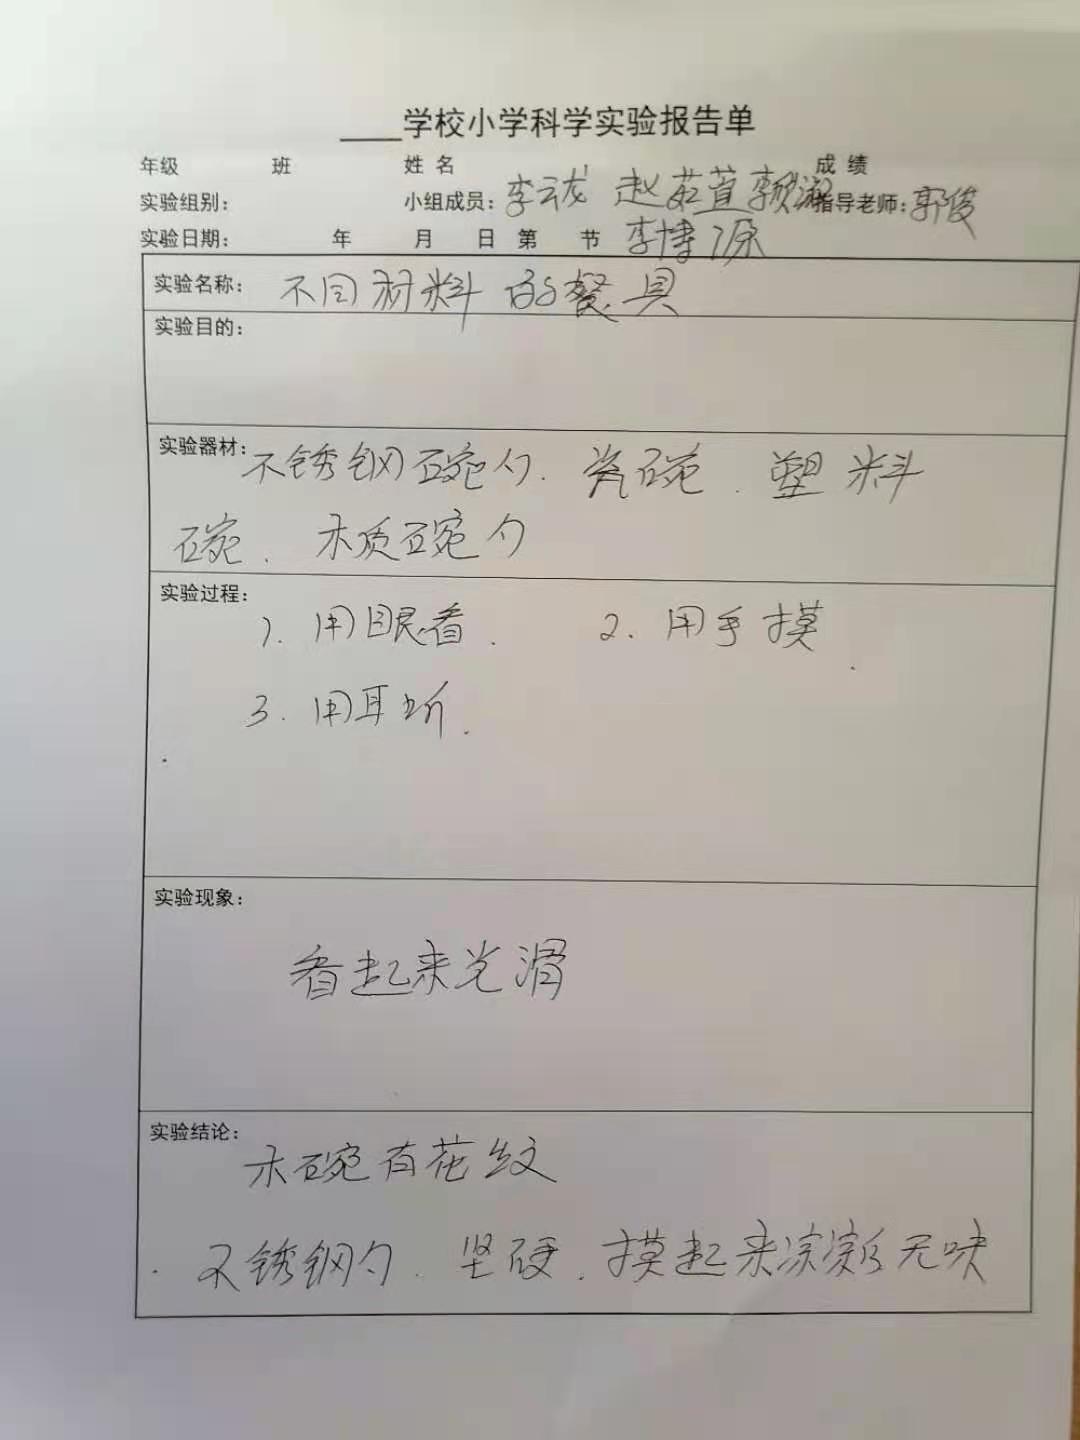 ____学校小学科学实验报告单
年级 班 姓 名 成 绩
实验组别： 小组成员：李云龙 赵茹萱 李 指导老师：郭俊
实验日期： 年 月 日 第 节 李博源
实验名称： 不同材料的餐具
实验目的：
实验器材：不锈钢碗勺．瓷碗．塑料
碗．木质碗勺
实验过程：
1．用眼看． 2．用手摸
3．用耳听．
实验现象：
看起来光滑
实验结论：
木碗有花纹
不锈钢勺．坚硬．摸起来凉凉的无味